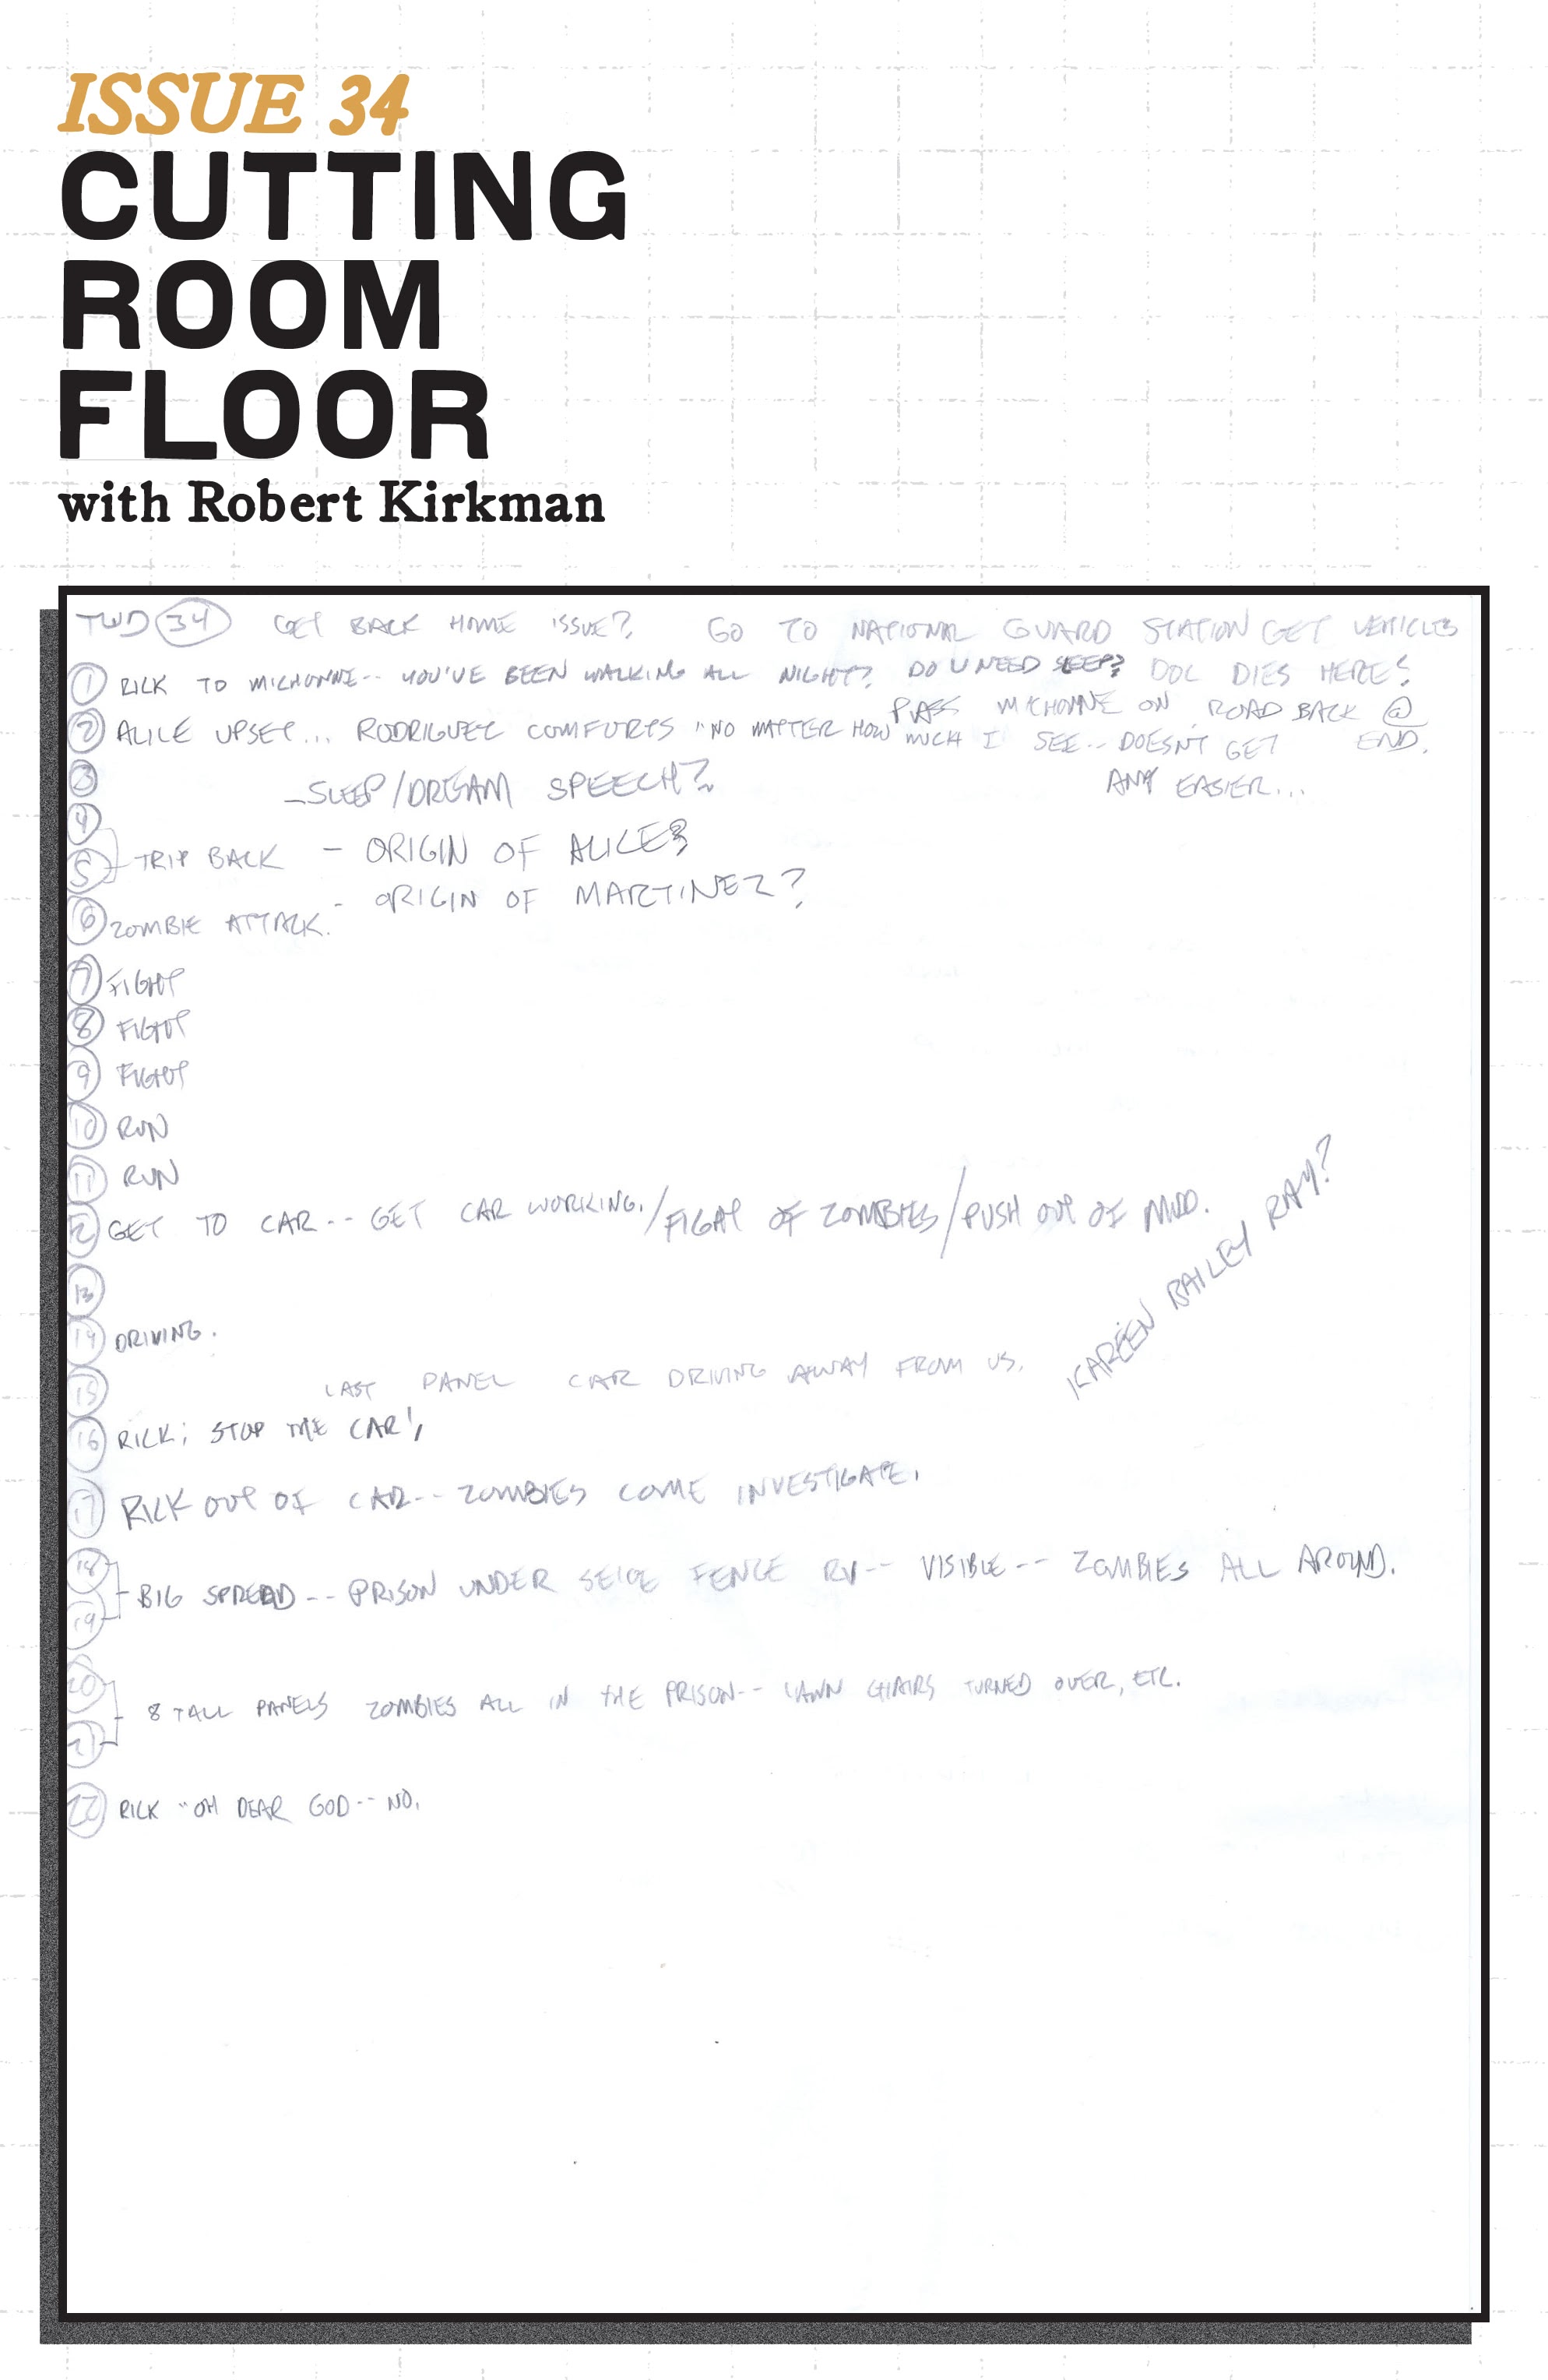 ISSUE 34
CUTTING
ROOM
FLOOR
with Robert Kirkman
TWD 34 GET BACK HOME ISSUE? GO TO NATIONAL GUARD STATION GET VEHICLES
1 RICK TO MICHONNE-- YOU'VE BEEN WALKING ALL NIGHT? DO U NEED SLEEP? DOC DIES HERE?
PASS MICHONNE ON ROAD BACK @ END.
2 ALICE UPSET... RODRIGUEZ COMFORTS "NO MATTER HOW MUCH I SEE-- DOESN'T GET
ANY EASIER...
3 -SLEEP/DREAM SPEECH?
4
5 TRIP BACK - ORIGIN OF ALICE?
- ORIGIN OF MARTINEZ?
6 ZOMBIE ATTACK.
7 FIGHT
8 FIGHT
9 FIGHT
10 RUN
11 RUN
12 GET TO CAR-- GET CAR WORKING./FIGHT OF ZOMBIES/PUSH OUT OF MUD.
KAREEN BAILEY RAY?
13
14 DRIVING.
15 LAST PANEL CAR DRIVING AWAY FROM US.
16 RICK; STOP THE CAR!
17 RICK OUT OF CAR-- ZOMBIES COME INVESTIGATE.
18
19 BIG SPREAD-- PRISON UNDER SEIGE FENCE RV-- VISIBLE-- ZOMBIES ALL AROUND.
20
21 8 TALL PANELS ZOMBIES ALL IN THE PRISON-- LAWN CHAIRS TURNED OVER, ETC.
22 RICK "OH DEAR GOD-- NO.